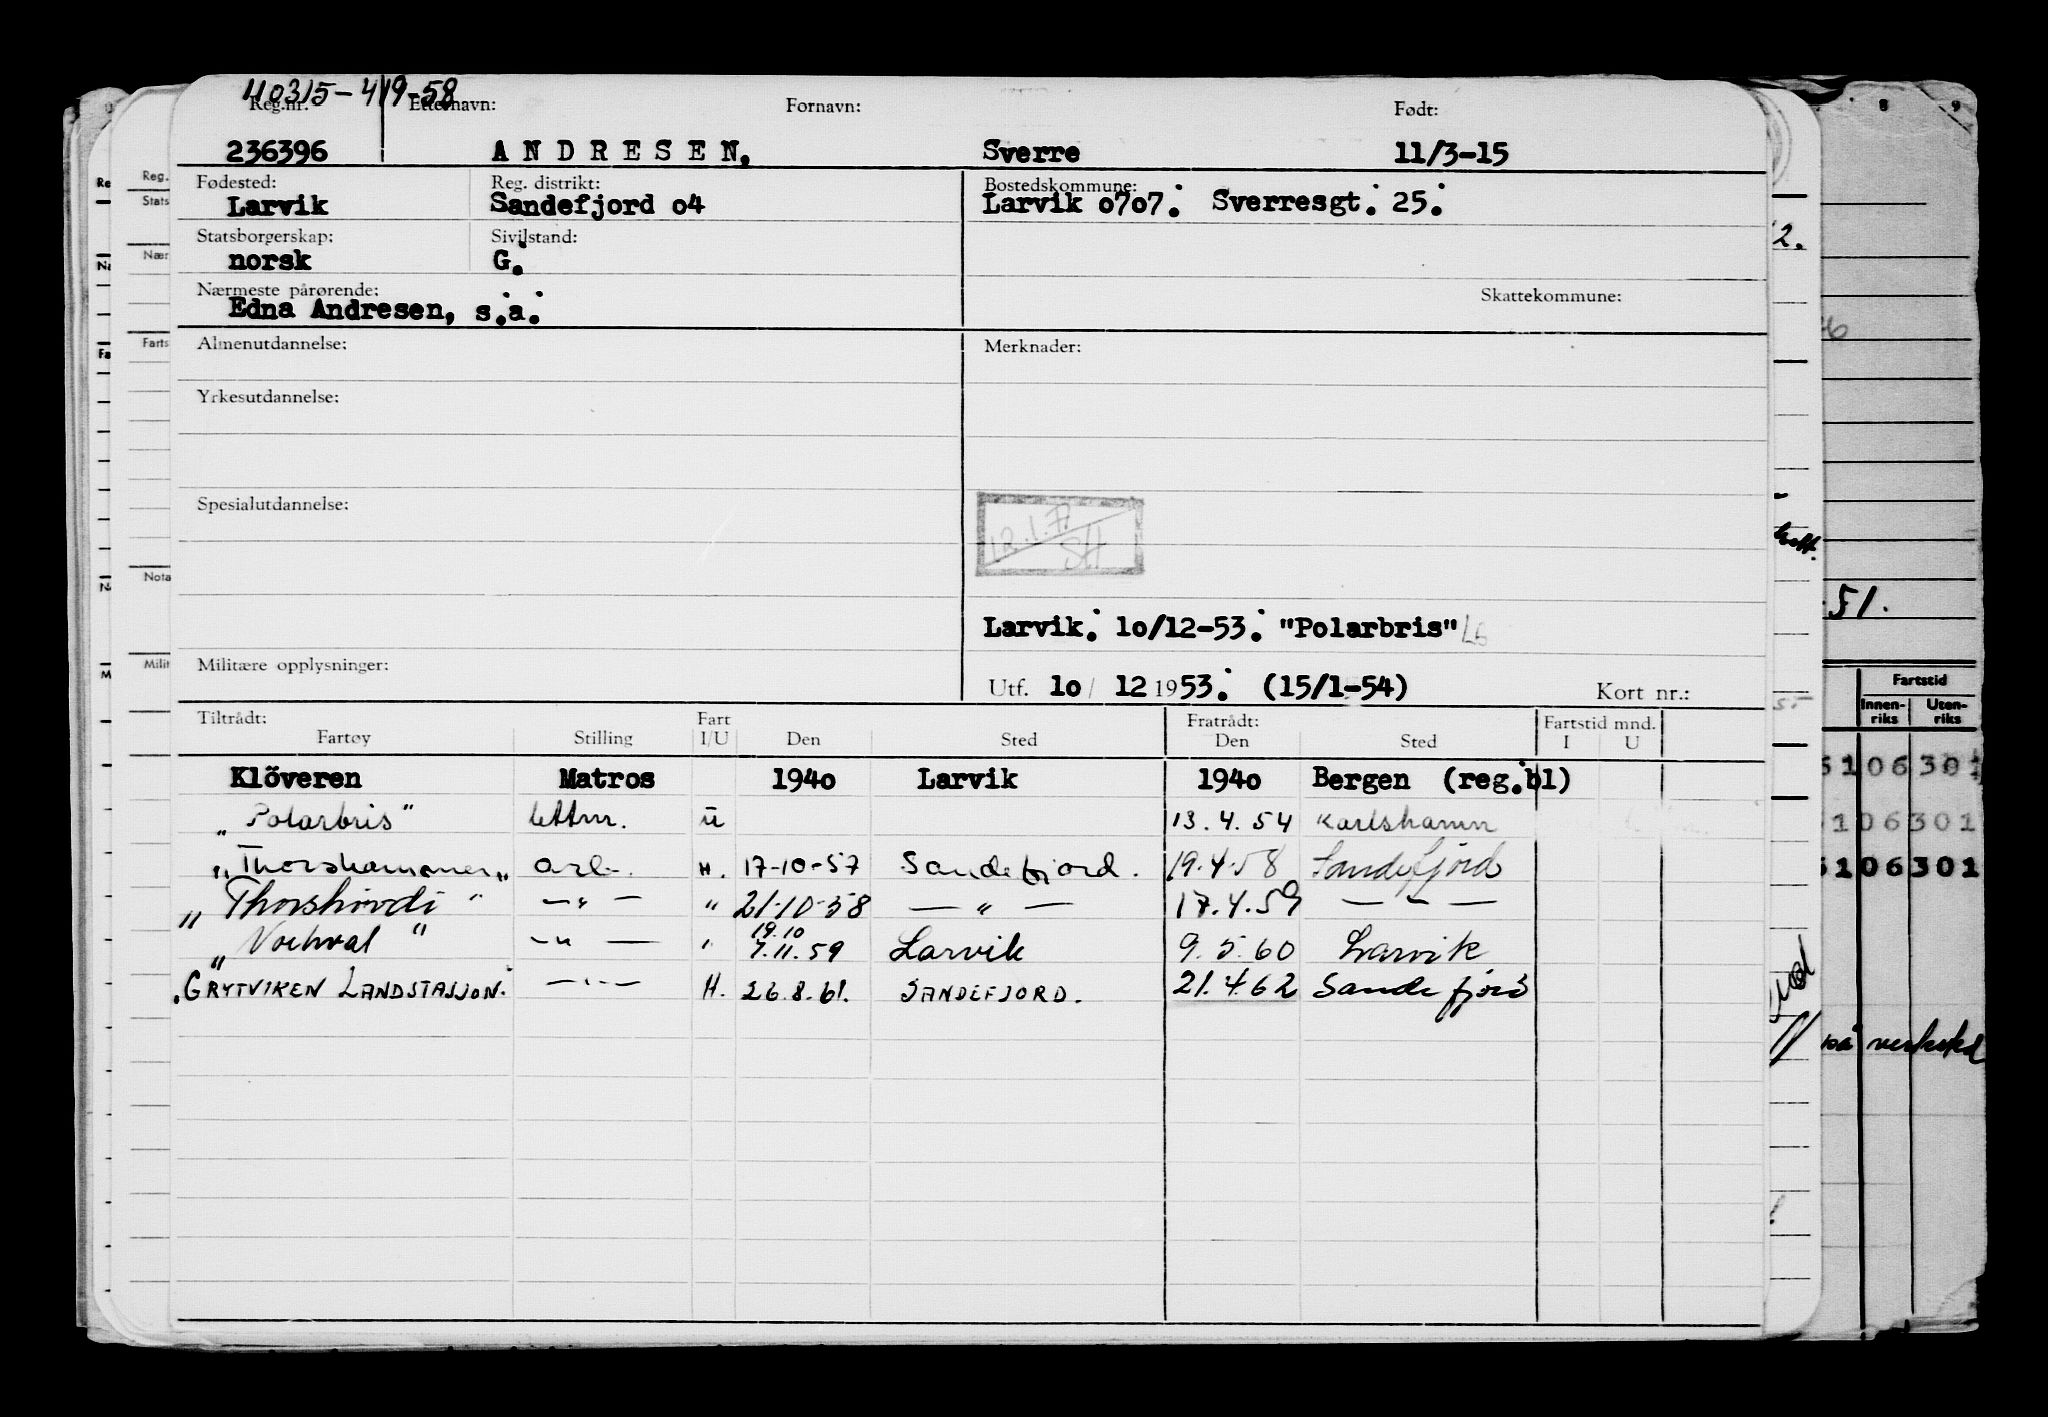 110315-419-58
Reg.nr. Etternavn: Fornavn: Født:
236396 ANDRESEN, Sverre 11/3-15
Fødested: Reg. distrikt: Bostedskommune:
Larvik Sandefjord o4 Larvik o7o7. Sverresgt. 25.
Statsborgerskap: Sivilstand:
norsk G.
Nærmeste pårørende: Skattekommune:
Edna Andresen, s.a.
Almenutdannelse: Merknader:
Yrkesutdannelse:
Spesialutdannelse:
SH
Larvik. 1o/12-53. "Polarbris"
Militære opplysninger: Utf. 1o/ 12 1953. (15/1-54) Kort nr.:
Tiltrådt: Fart Fratrådt: Fartstid mnd.
Fartøy Stilling I/U Den Sted Den Sted I U
Klöveren Matros 194o Larvik 194o Bergen (reg.bl)
"Polarbris" lettm. u 13.4.54 Karlshamn
"Thorshammer" arb. H. 17-10-57 Sandefjord. 19.4.58 Sandefjord
"Thorshövdi" — " — " 21-10-58 — " — 17.4.59 — " —
19.10
" Norhval " — " — " 7.11.59 Larvik 9.5.60 Larvik
"GRYTVIKEN LANDSTASJON" — " — H. 26.8.61. SANDEFJORD. 21.4.62 Sandefjord
8 9
51.
Fartstid
Innen-riks Uten-riks
5106301
5106301
5106301
på verksted